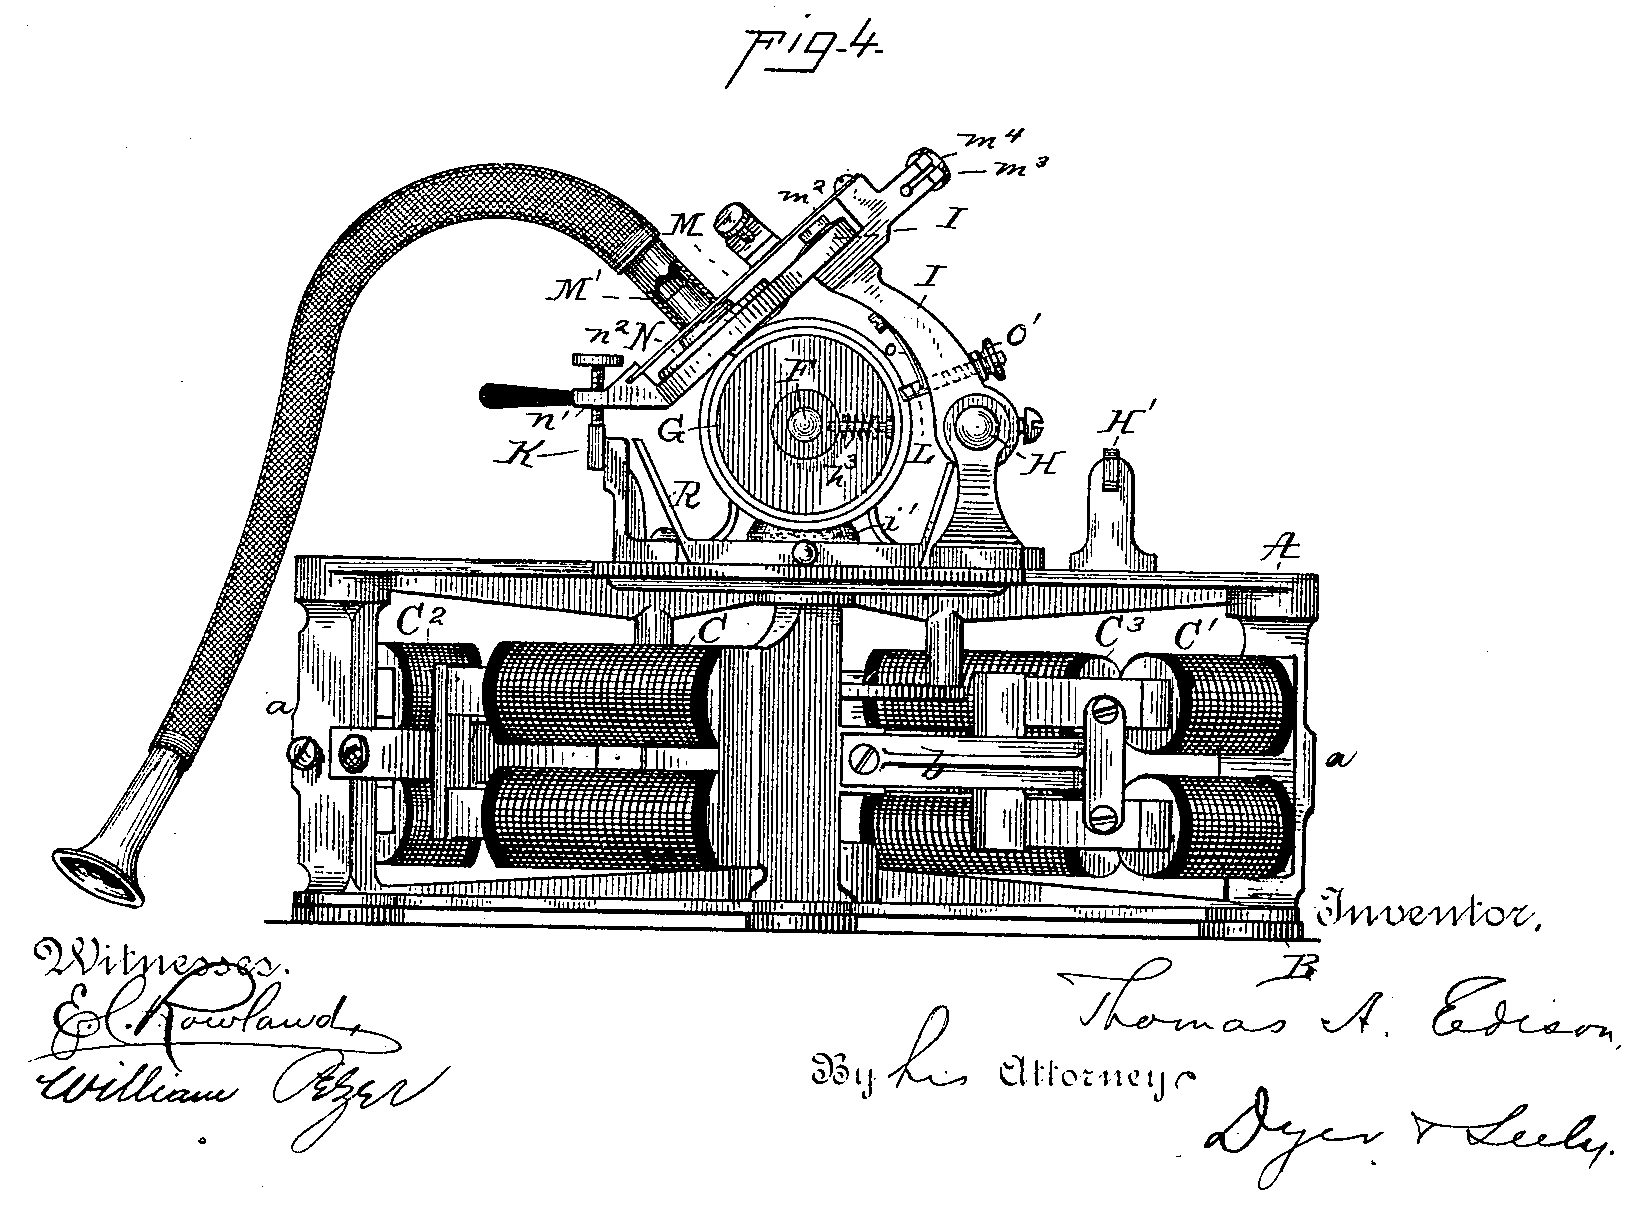 Fig. 4.
m⁴
m³
m²
M
I
I
M'
n²
N
O'
o
F
n'
G
K
H'
L
H
h³
R
i'
A
C²
C
C³
C'
a
b
a
Inventor.
B
Witnesses.
E. C. Rowland,
William Pelzer
Thomas A. Edison,
By his Attorneys
Dyer & Seely.